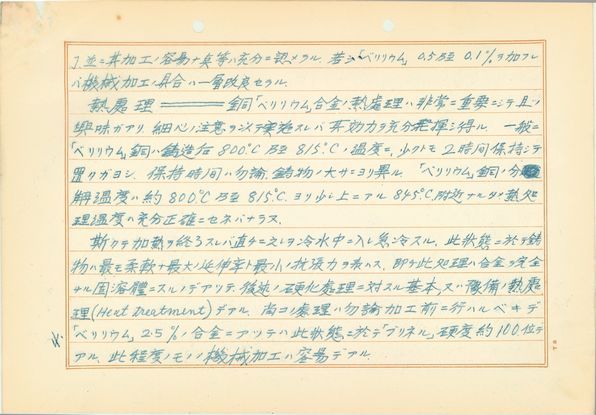 丁、並ニ其加工ノ容易ナ点等ハ充分ニ認メラル. 若シ「ベリリウム」0.5乃至0.1%ヲ加フレ
バ機械加工ノ具合ハ一層改良セラル.
熱處理 ═══ 銅「ベリリウム」合金ノ熱處理ハ非常ニ重要ニシテ且ツ
興味ガアリ 細心ノ注意ヲ以テ実施スレバ其効力ヲ充分発揮シ得ル. 一般ニ
「ベリリウム」銅ハ鋳造后 800℃乃至 815℃ノ温度ニ, 少クトモ 2時間保持シテ
置クガヨシ. 保持時間ハ勿論, 鋳物ノ大サニヨリ異ル. 「ベリリウム」銅ノ分
解温度ハ約 800℃乃至 815℃ヨリ少シ上ニアル 845℃附近ナルタメ熱処
理温度ハ充分正確ニセネバナラヌ.
斯クテ加熱ヲ終ラスレバ直チニ之レヲ冷水中ニ入レ急冷スル. 此状態ニ於テ鋳
物ハ最モ柔軟ナ最大ノ延伸率ト最小ノ抗張力ヲ表ハス. 即チ此処理ハ合金ヲ完全
ナル固溶體ニスルノデアリテ, 後述ノ硬化處理ニ対スル基本又ハ豫備ノ熱處
理(Heat treatment)デアル. 尚ヨリ処理ハ勿論加工前ニ行ハルベキデ
「ベリリウム」2.5%ノ合金ニアリテハ此状態ニ於テ「ブリネル」硬度約100位デ
アル. 此程度ノモノノ機械加工ハ容易デアル.